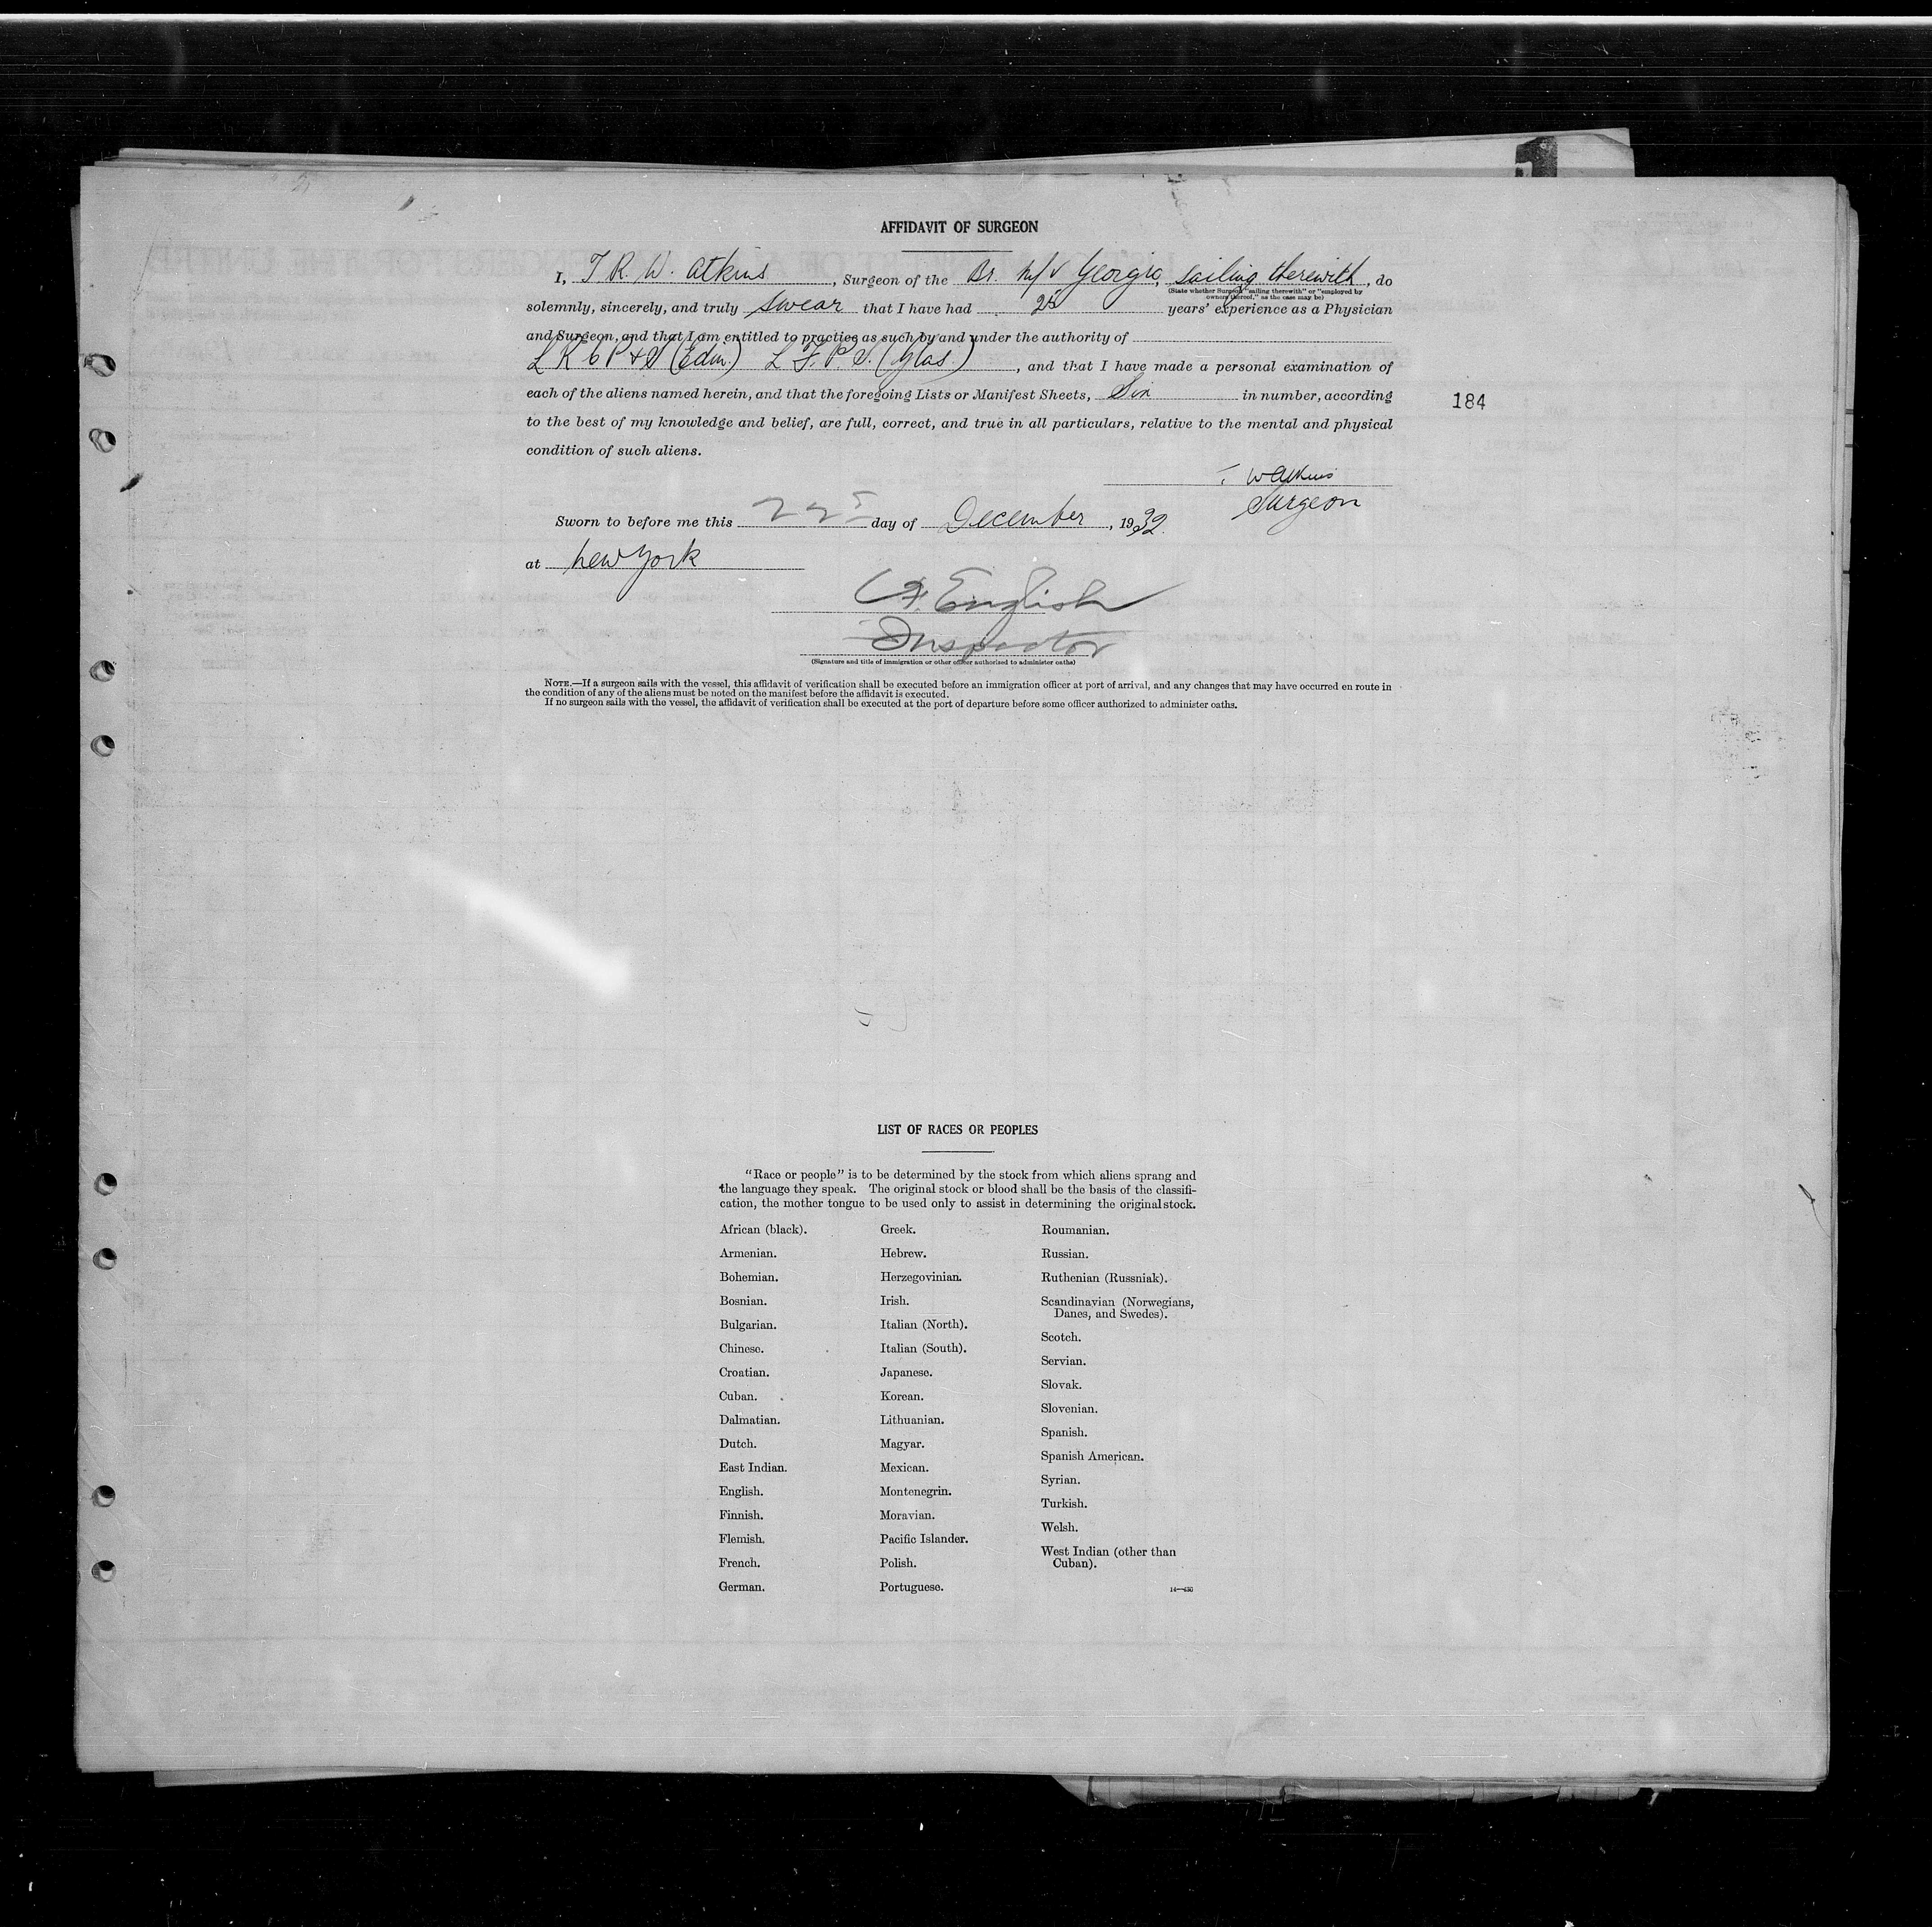 AFFIDAVIT OF SURGEON
I, T. R. W. Atkins, Surgeon of the Br. M/V Georgic, sailing therewith, do
(State whether Surgeon "sailing therewith" or "employed by
owners thereof," as the case may be)
solemnly, sincerely, and truly swear that I have had 25 years' experience as a Physician
and Surgeon, and that I am entitled to practice as such by and under the authority of
L R C P & S (Edin.) L F. P. S. (Glas.), and that I have made a personal examination of
each of the aliens named herein, and that the foregoing Lists or Manifest Sheets, Six in number, according
184
to the best of my knowledge and belief, are full, correct, and true in all particulars, relative to the mental and physical
condition of such aliens.
W Atkins
Surgeon
Sworn to before me this 22 day of December, 1932.
at New York
English
Inspector
(Signature and title of immigration or other officer authorized to administer oaths)
NOTE.—If a surgeon sails with the vessel, this affidavit of verification shall be executed before an immigration officer at port of arrival, and any changes that may have occurred en route in
the condition of any of the aliens must be noted on the manifest before the affidavit is executed.
If no surgeon sails with the vessel, the affidavit of verification shall be executed at the port of departure before some officer authorized to administer oaths.
LIST OF RACES OR PEOPLES
"Race or people" is to be determined by the stock from which aliens sprang and
the language they speak. The original stock or blood shall be the basis of the classifi-
cation, the mother tongue to be used only to assist in determining the original stock.
African (black).
Armenian.
Bohemian.
Bosnian.
Bulgarian.
Chinese.
Croatian.
Cuban.
Dalmatian.
Dutch.
East Indian.
English.
Finnish.
Flemish.
French.
German.
Greek.
Hebrew.
Herzegovinian.
Irish.
Italian (North).
Italian (South).
Japanese.
Korean.
Lithuanian.
Magyar.
Mexican.
Montenegrin.
Moravian.
Pacific Islander.
Polish.
Portuguese.
Roumanian.
Russian.
Ruthenian (Russniak).
Scandinavian (Norwegians,
Danes, and Swedes).
Scotch.
Servian.
Slovak.
Slovenian.
Spanish.
Spanish American.
Syrian.
Turkish.
Welsh.
West Indian (other than
Cuban).